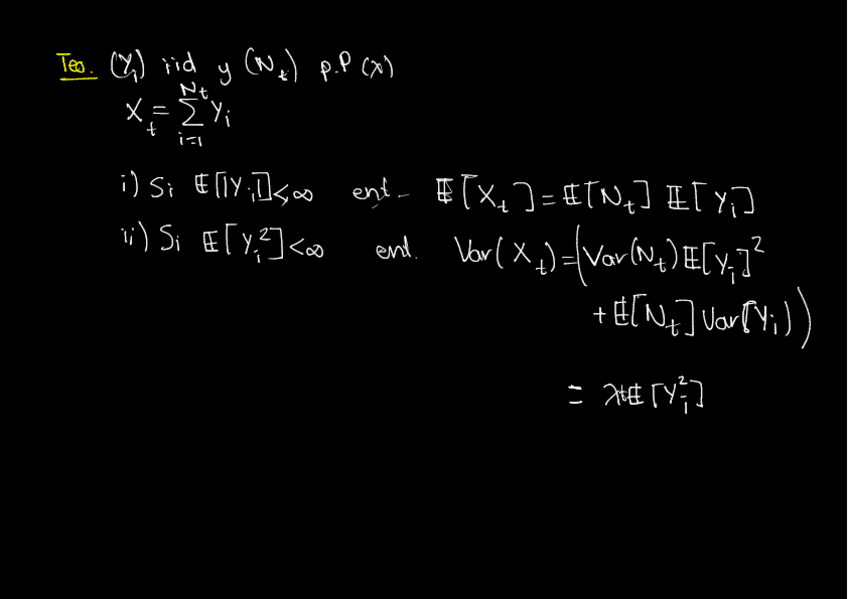 Teo. (Y_i) iid y (N_t) p.P (λ)
X_t = \sum_{i=1}^{N_t} Y_i
i) Si 𝔼[|Y_i|] < ∞ ent- 𝔼[X_t] = 𝔼[N_t] 𝔼[Y_i]
ii) Si 𝔼[Y_i^2] < ∞ ent. Var(X_t) = (Var(N_t) 𝔼[Y_i]^2
+ 𝔼[N_t] Var[Y_i))
= λt𝔼[Y_i^2]